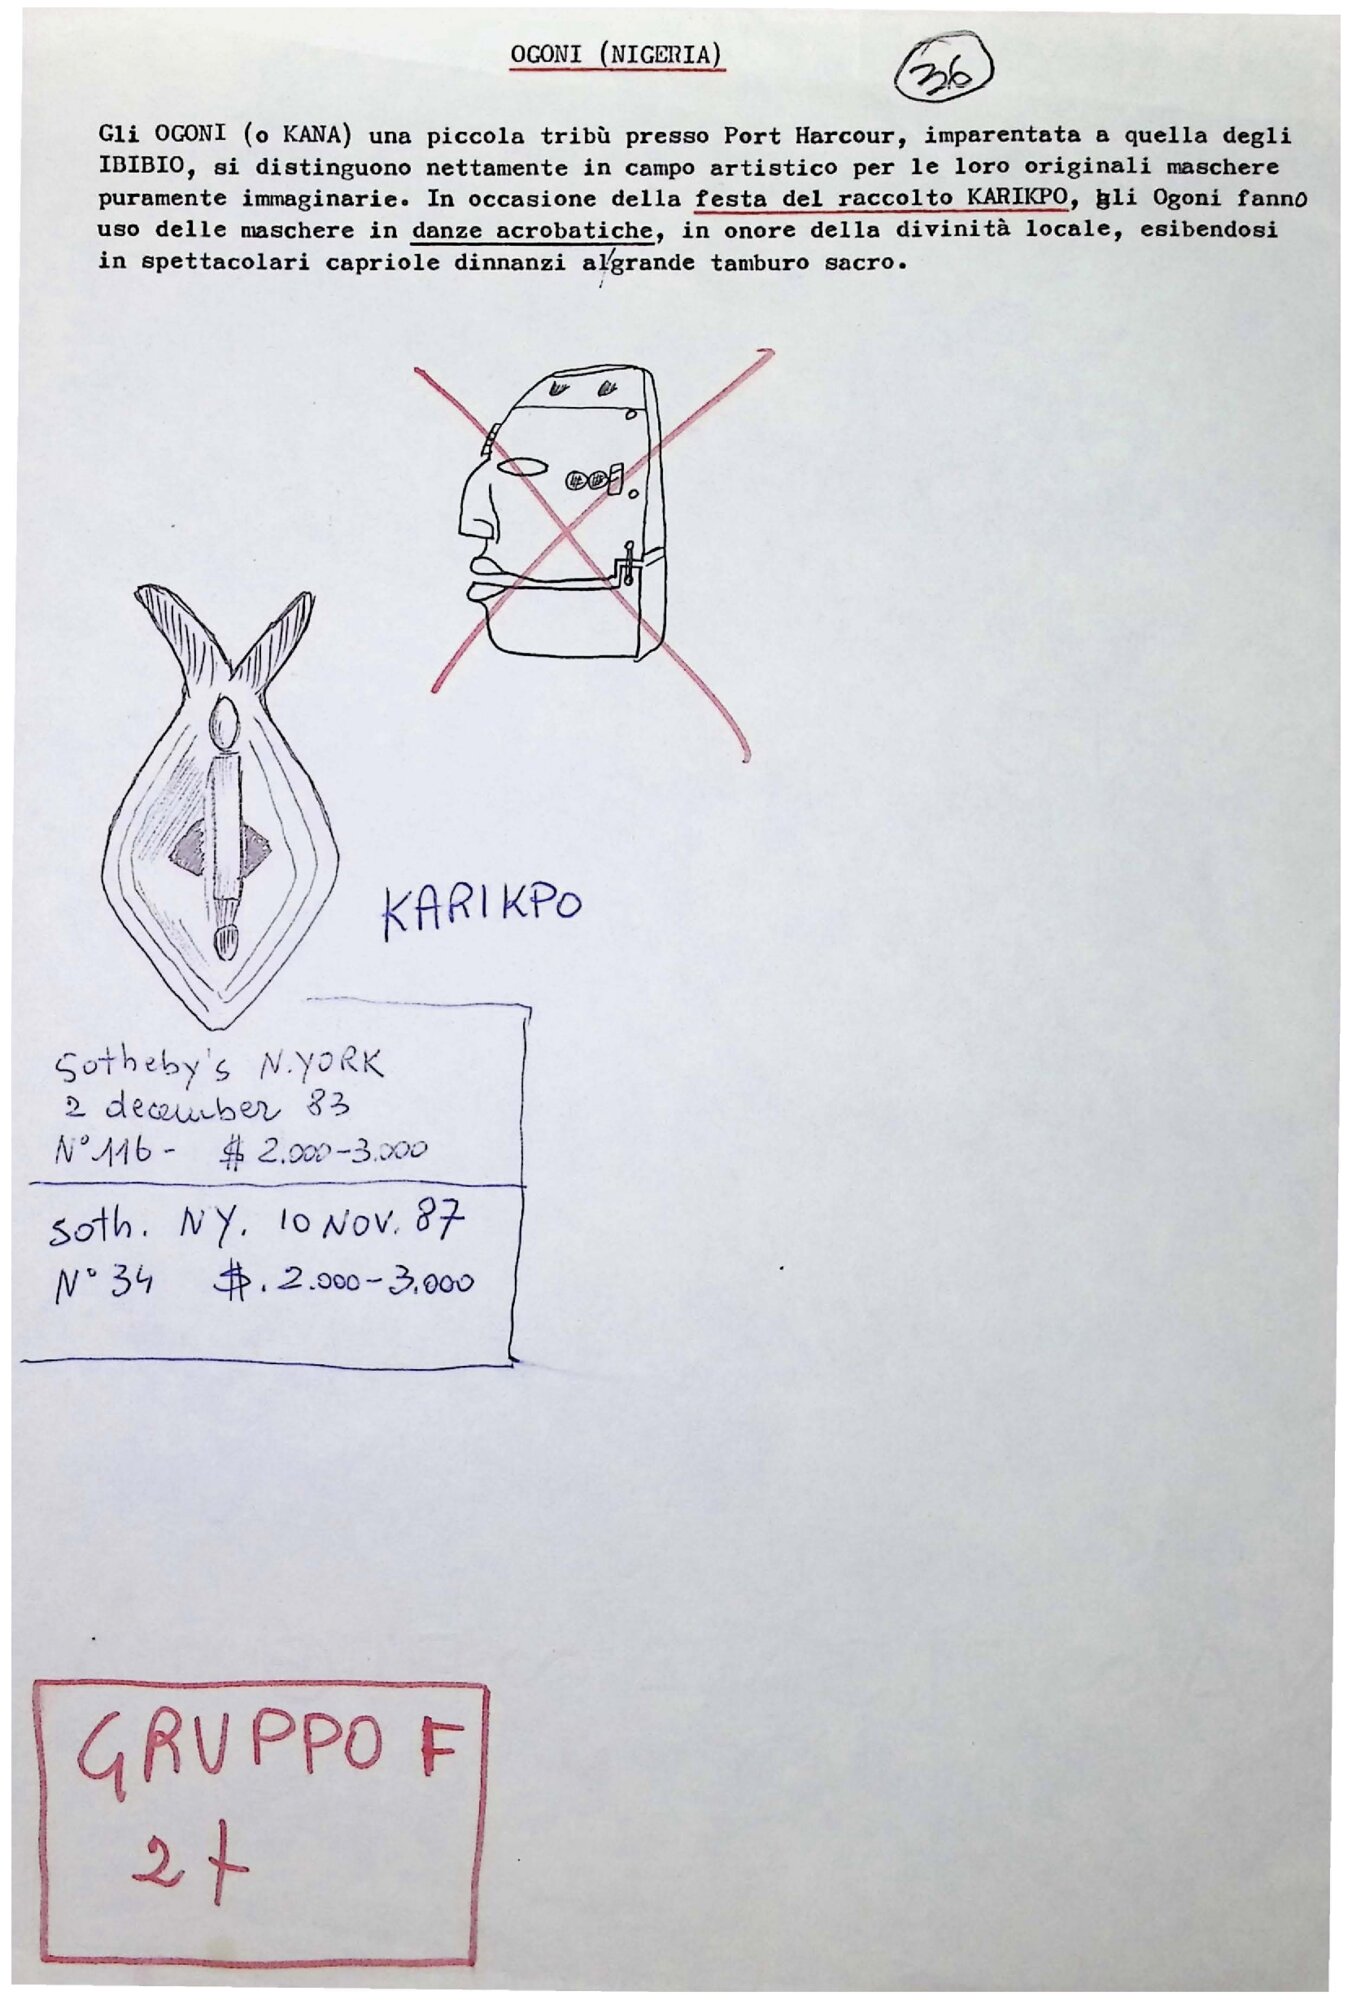 OGONI (NIGERIA)
36
Gli OGONI (o KANA) una piccola tribù presso Port Harcour, imparentata a quella degli
IBIBIO, si distinguono nettamente in campo artistico per le loro originali maschere
puramente immaginarie. In occasione della festa del raccolto KARIKPO, gli Ogoni fanno
uso delle maschere in danze acrobatiche, in onore della divinità locale, esibendosi
in spettacolari capriole dinnanzi al grande tamburo sacro.
KARIKPO
Sotheby's N.YORK
2 december 83
N° 116 - $ 2.000-3.000
Soth. NY. 10 NOV. 87
N° 34 $. 2.000-3.000
GRUPPO F
2+